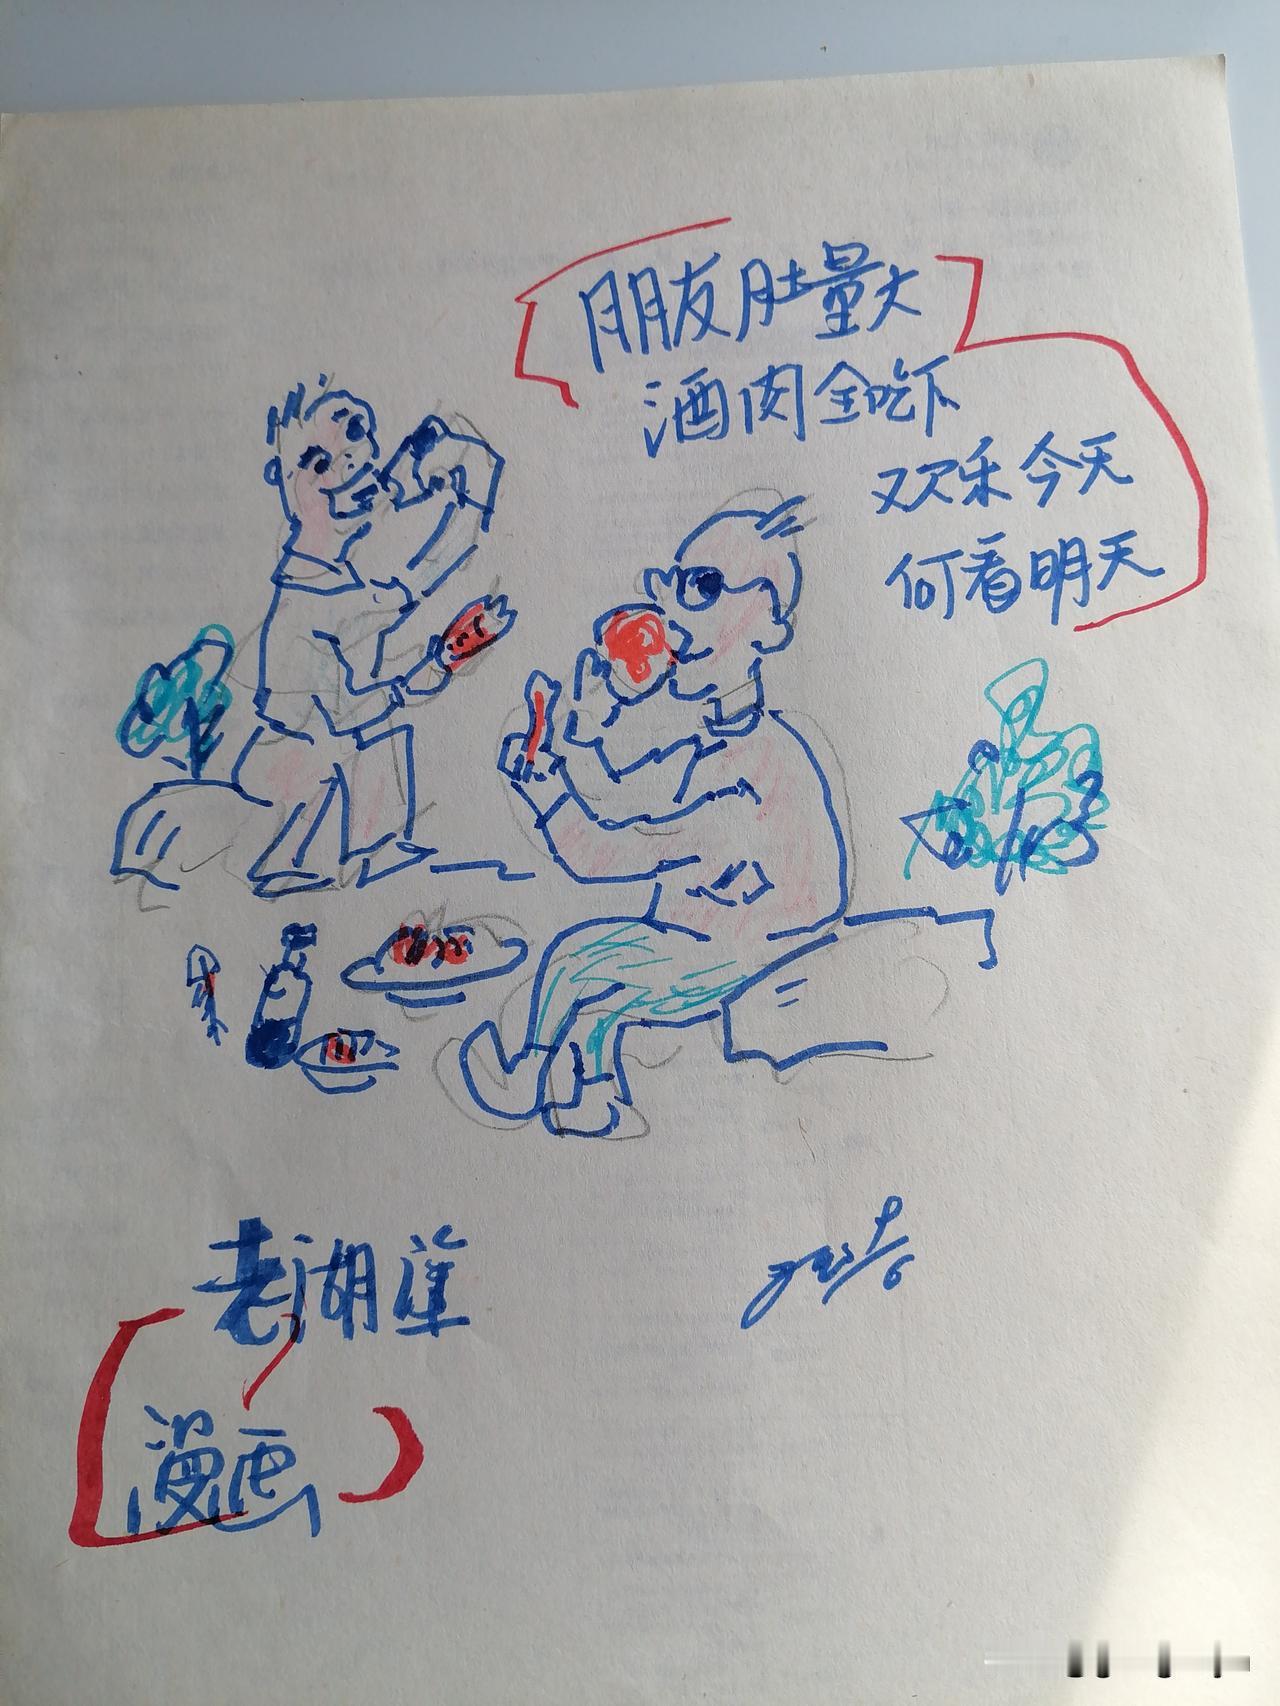 朋友肚量大
酒肉全吃下
欢乐今天
何看明天
老湖
漫画